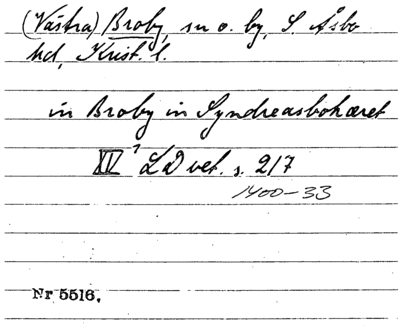 (Västra) Broby, sn o. by, S. Åsbo
hd, Krist. l.
in Broby in Syndreasbohæret
XIV? LD vet. s. 217
1400-33
Nr 5516.